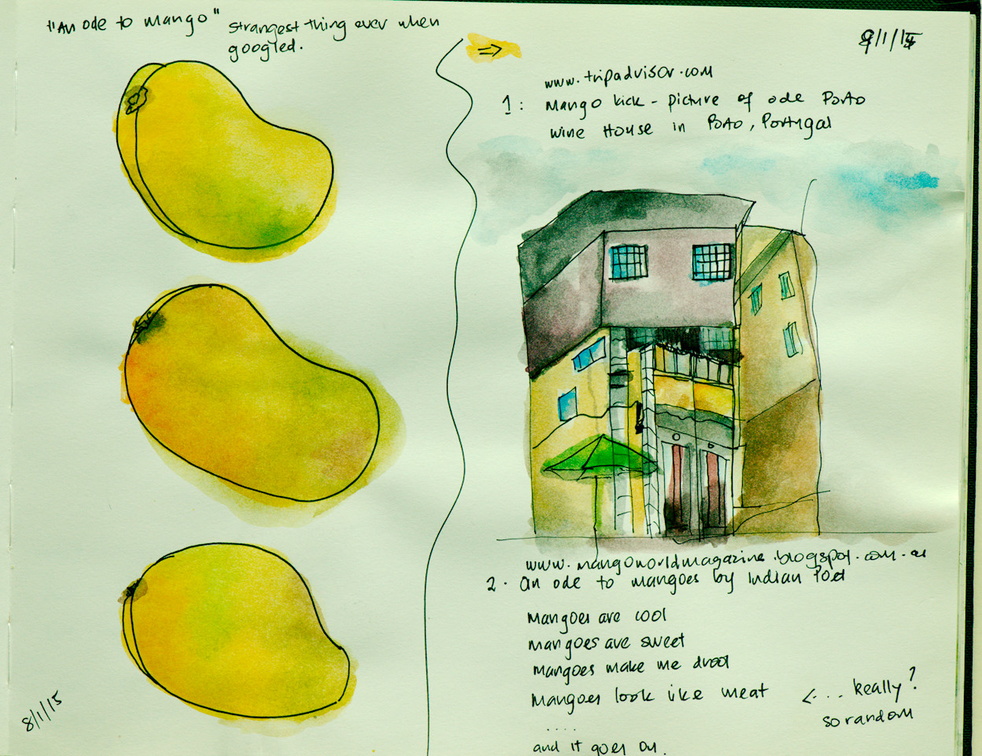 "An ode to mango" strangest thing ever when
googled.
8/1/15
⇒
8/1/15
www.tripadvisor.com
1: Mango kick - picture of ode Porto
wine House in Porto, Portugal
www.mangoworldmagazine.blogspot.com.au
2. An ode to mangoes by Indian Poet
Mangoes are cool
mangoes are sweet
mangoes make me drool
Mangoes look like meat <... Really?
so random
....
and it goes on.